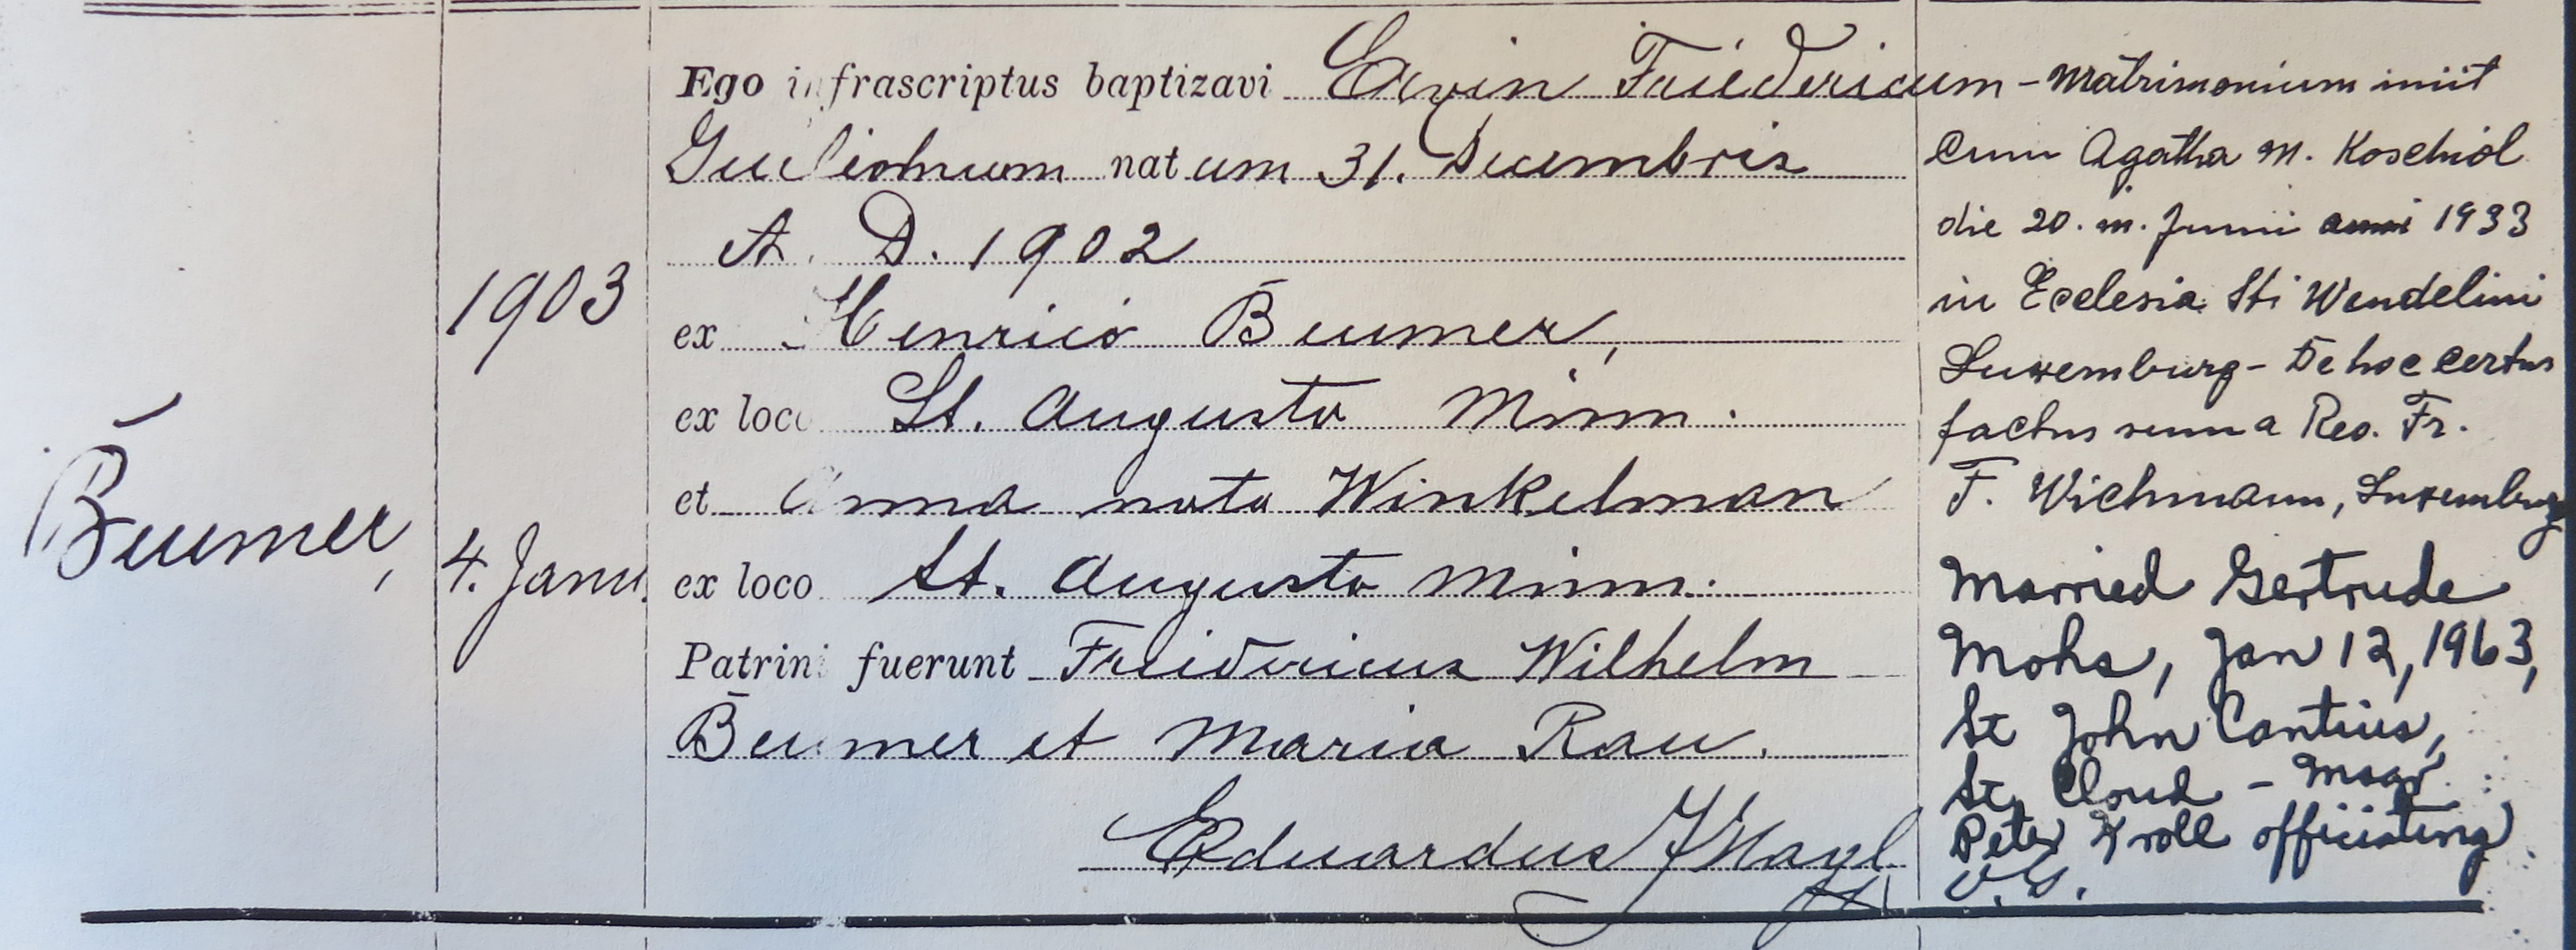 Beumer,
1903
4. Janu.
Ego infrascriptus baptizavi Ervin Friedericum
Guilielmum natum 31. Decembris
A. D. 1902
ex Henrico Beumer,
ex loco St. Augusta Minn.
et Anna nata Winkelman
ex loco St. Augusta Minn.
Patrini fuerunt Friedericus Wilhelm
Beumer et Maria Rau.
Eduardus Nagl
- Matrimonium iniit
cum Agatha M. Koschiol
die 20. m. Junii anni 1933
in Ecclesia Sti Wendelini
Luxemburg - De hoc certus
factus sum a Rev. Fr.
F. Wichmann, Luxemburg
Married Gertrude
Mohs, Jan 12, 1963,
St John Cantius,
St. Cloud - Msgr
Peter Kroll officiating
V.G.